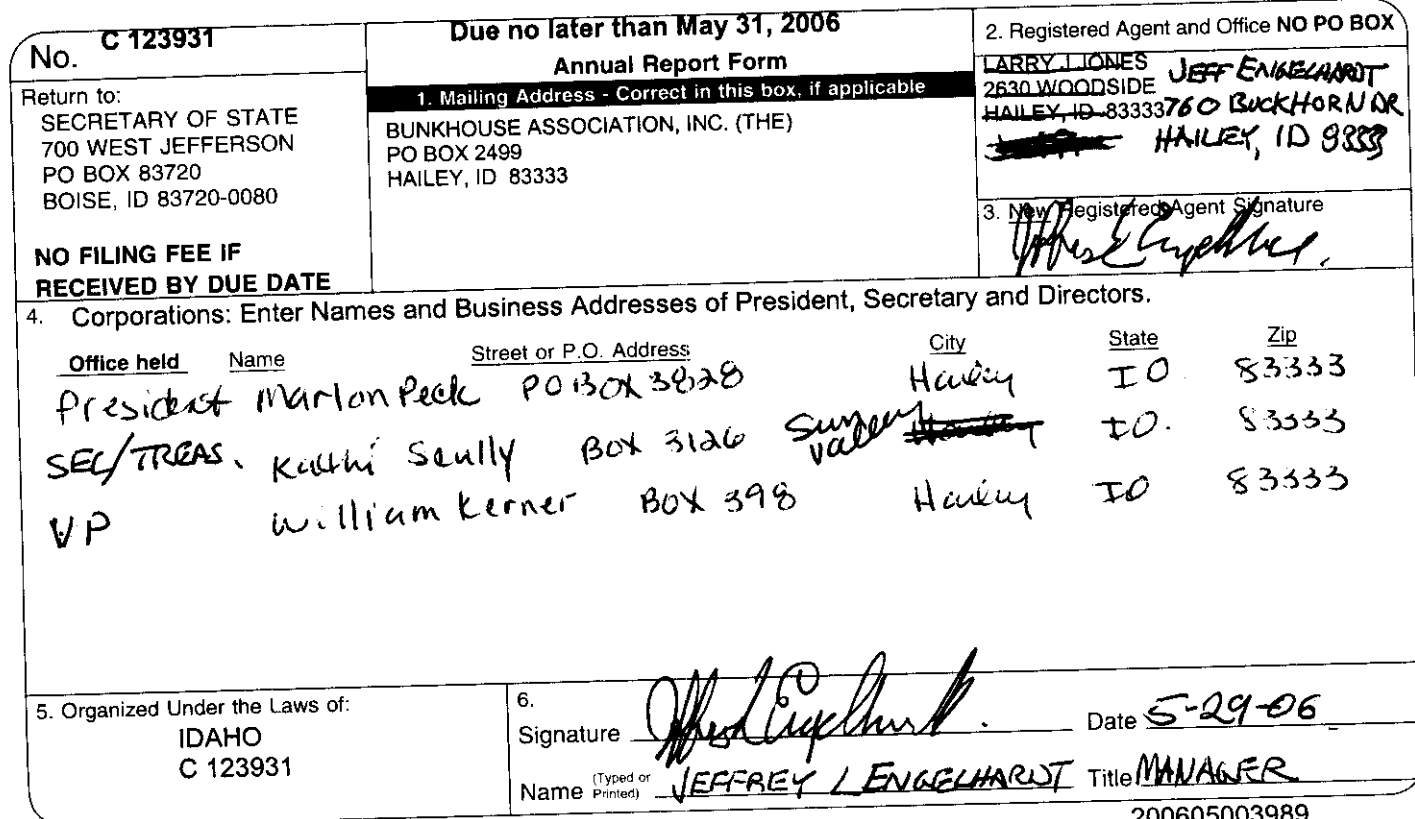 No. C 123931
Return to:
SECRETARY OF STATE
700 WEST JEFFERSON
PO BOX 83720
BOISE, ID 83720-0080
NO FILING FEE IF
RECEIVED BY DUE DATE
Due no later than May 31, 2006
Annual Report Form
1. Mailing Address - Correct in this box, if applicable
BUNKHOUSE ASSOCIATION, INC. (THE)
PO BOX 2499
HAILEY, ID 83333
2. Registered Agent and Office NO PO BOX
LARRY J JONES JEFF ENGELHARDT
2630 WOODSIDE
HAILEY, ID 83333 760 BUCKHORN DR
HAILEY, ID 8333
3. New Registered Agent Signature
4. Corporations: Enter Names and Business Addresses of President, Secretary and Directors.
Office held Name Street or P.O. Address City State Zip
President Marlon Peck PO BOX 3828 Hailey ID 83333
SEC/TREAS. Kathi Scully BOX 3126 Sun Valley ID. 83333
VP William Kerner BOX 398 Hailey ID 83333
5. Organized Under the Laws of:
IDAHO
C 123931
6.
Signature Date 5-29-06
Name (Typed or Printed) JEFFREY L ENGELHARDT Title MANAGER
200605003989